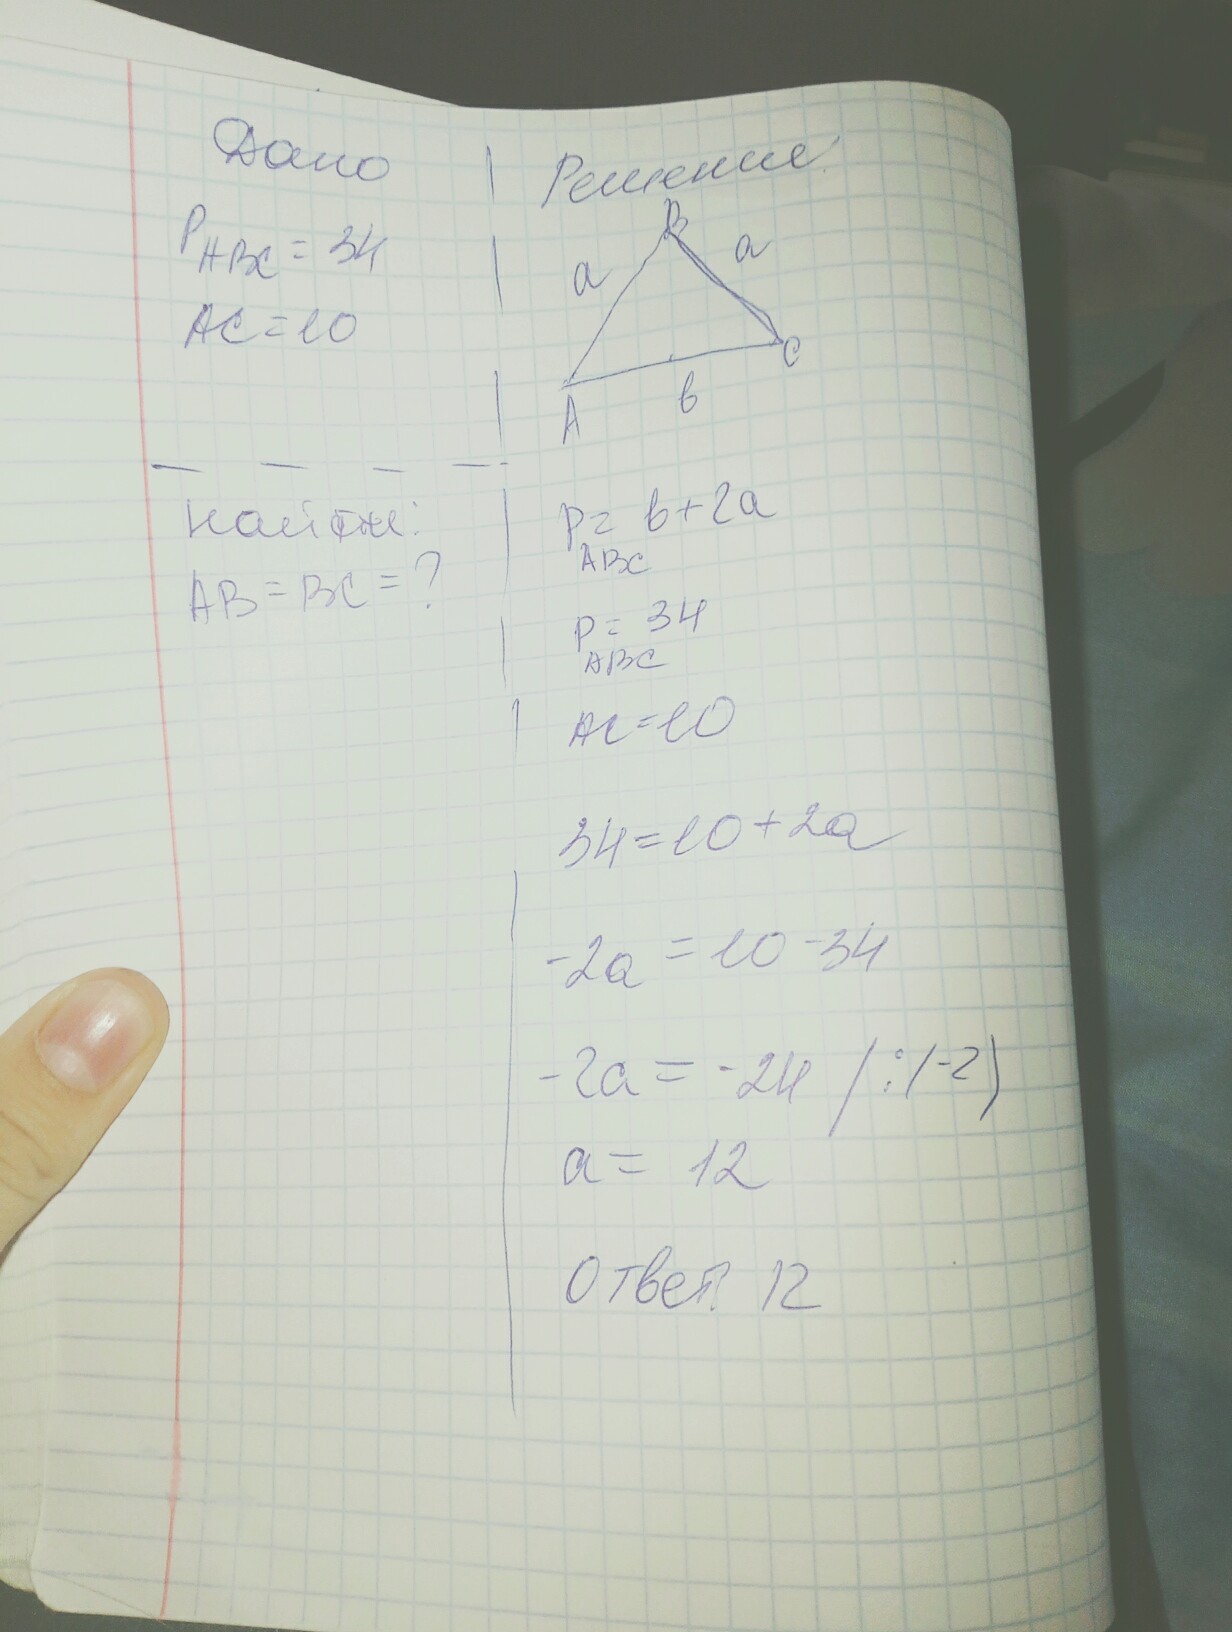 Дано
P ABC = 34
AC = 10
Найти:
AB = BC = ?
Решение:
B
a
a
A
C
в
P ABC = в + 2a
P ABC = 34
AC = 10
34 = 10 + 2a
-2a = 10 - 34
-2a = -24 / :(-2)
a = 12
Ответ: 12